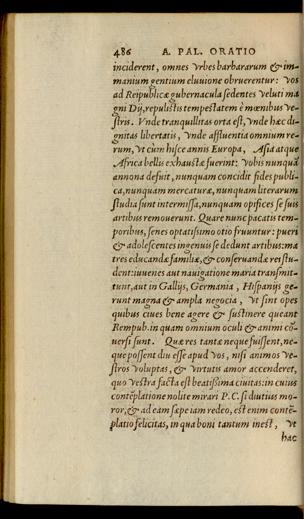 486 A. PAL. ORATIO
inciderent, omnes vrbes barbararum & im-
manium gentium eluuione obruerentur: vos
ad Reipublicæ gubernacula sedentes veluti ma
gni Dij, repulistis tempestatem è mœnibus ve-
stris. Vnde tranquillitas orta est, vnde hæc di-
gnitas libertatis, vnde affluentia omnium re-
rum, vt cùm hisce annis Europa, Asia atque
Africa bellis exhaustæ fuerint: vobis nunquā
annona defuit, nunquam concidit fides publi-
ca, nunquam mercaturæ, nunquam literarum
studia sunt intermissa, nunquam opifices se suis
artibus remouerunt. Quare nunc pacatis tem-
poribus, senes optatissimo otio fruuntur: pueri
& adolescentes ingenuis se dedunt artibus: ma
tres educandæ familiæ, & conseruandæ rei stu-
dent: iuuenes aut nauigatione maria transmit-
tunt, aut in Gallijs, Germania, Hispanijs ge-
runt magna & ampla negocia, vt sint opes
quibus ciues bene agere & sustinere queant
Rempub. in quam omnium oculi & animi cō-
uersi sunt. Quæ res tantæ neque fuissent, ne-
que possent diu esse apud vos, nisi animos ve-
stros voluptas, & virtutis amor accenderet,
quo vestra facta est beatissima ciuitas: in cuius
contēplatione nolite mirari P. C. si diutius mo-
ror, & ad eam sæpe iam redeo, est enim contē-
platio felicitas, in qua boni tantum inest, vt
hac